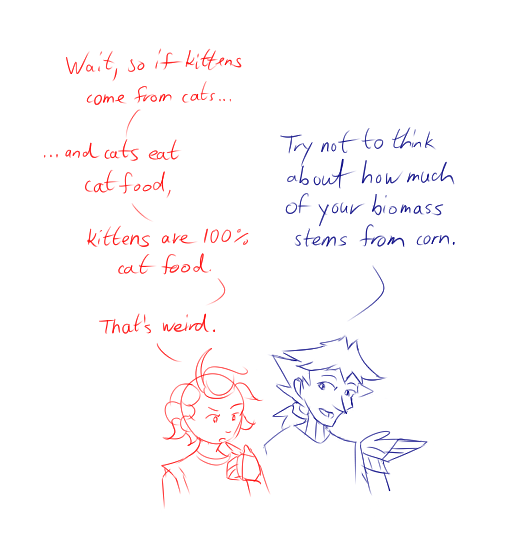 Wait, so if kittens
come from cats...
...and cats eat
cat food,
kittens are 100%
cat food.
That's weird.
Try not to think
about how much
of your biomass
stems from corn.